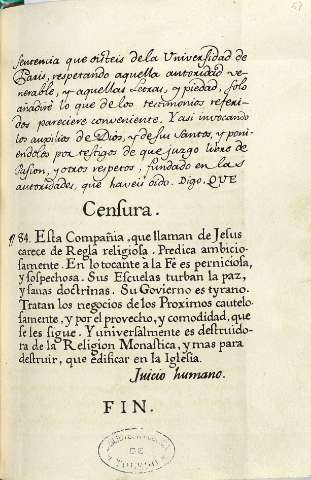 sentencia que oisteis de la Universidad de
Paris, respetando aquella autoridad ve-
nerable, y aquellas Letras, y piedad, solo
añadiré lo que de los testimonios referi-
dos pareciere conveniente. Y asi invocando
los auxilios de Dios, y de sus Santos, y poni-
endolos por testigos de que juzgo libre de
Pasion, y otros respetos, fundado en las
autoridades, que haveis oido. Digo, QUE
Censura.
¶ 84. Esta Compañia, que llaman de Jesus
carece de Regla religiosa. Predica ambicio-
samente. En lo tocante a la Fe es perniciosa,
y sospechosa. Sus Escuelas turban la paz,
y sanas doctrinas. Su Govierno es tyrano.
Tratan los negocios de los Proximos cautelo-
samente, y por el provecho, y comodidad, que
se les sigue. Y universalmente es destruido-
ra de la Religion Monastica, y mas para
destruir, que edificar en la Iglesia.
Juicio humano.
FIN.
DE